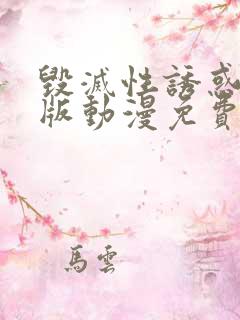 毀滅性誘惑
版動漫免費
馬雲